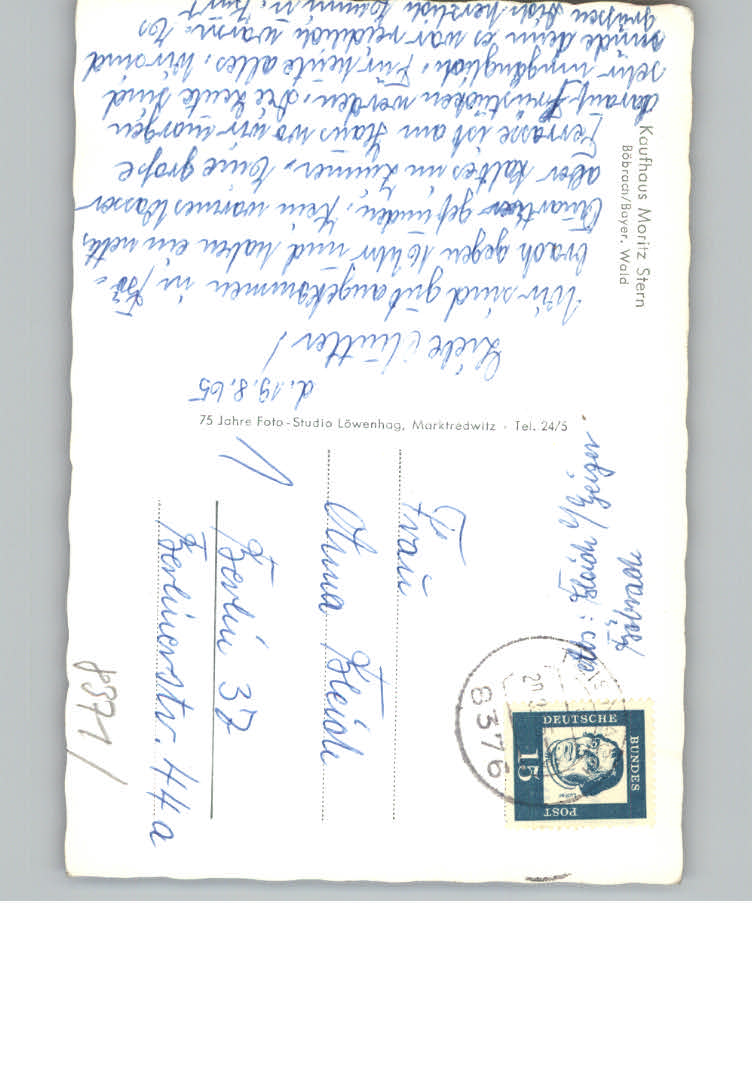 d. 19.8.65
Liebe Mutter!
Wir sind gut angekommen in Bö=
brach gegen 16 Uhr und haben ein nettes
Quartier gefunden, kein warmes Wasser
aber kaltes im Zimmer. Eine große
Terrasse ist am Haus wo wir morgen
darauf Frühstücken werden. Die Leute sind
sehr umgänglich. Für heute alles, wir sind
müde denn es war reichlich warm. Es
grüßen Dich herzlich
Kaufhaus Moritz Stern
Böbrach/Bayer. Wald
75 Jahre Foto-Studio Löwenhag, Marktredwitz - Tel. 24/5
Abs: Bleich
Böbrach
Frau
Anna Bleich
1
Berlin 37
Berlinerstr. 44a
8376
DEUTSCHE
BUNDES
POST
15
Luther
8371/